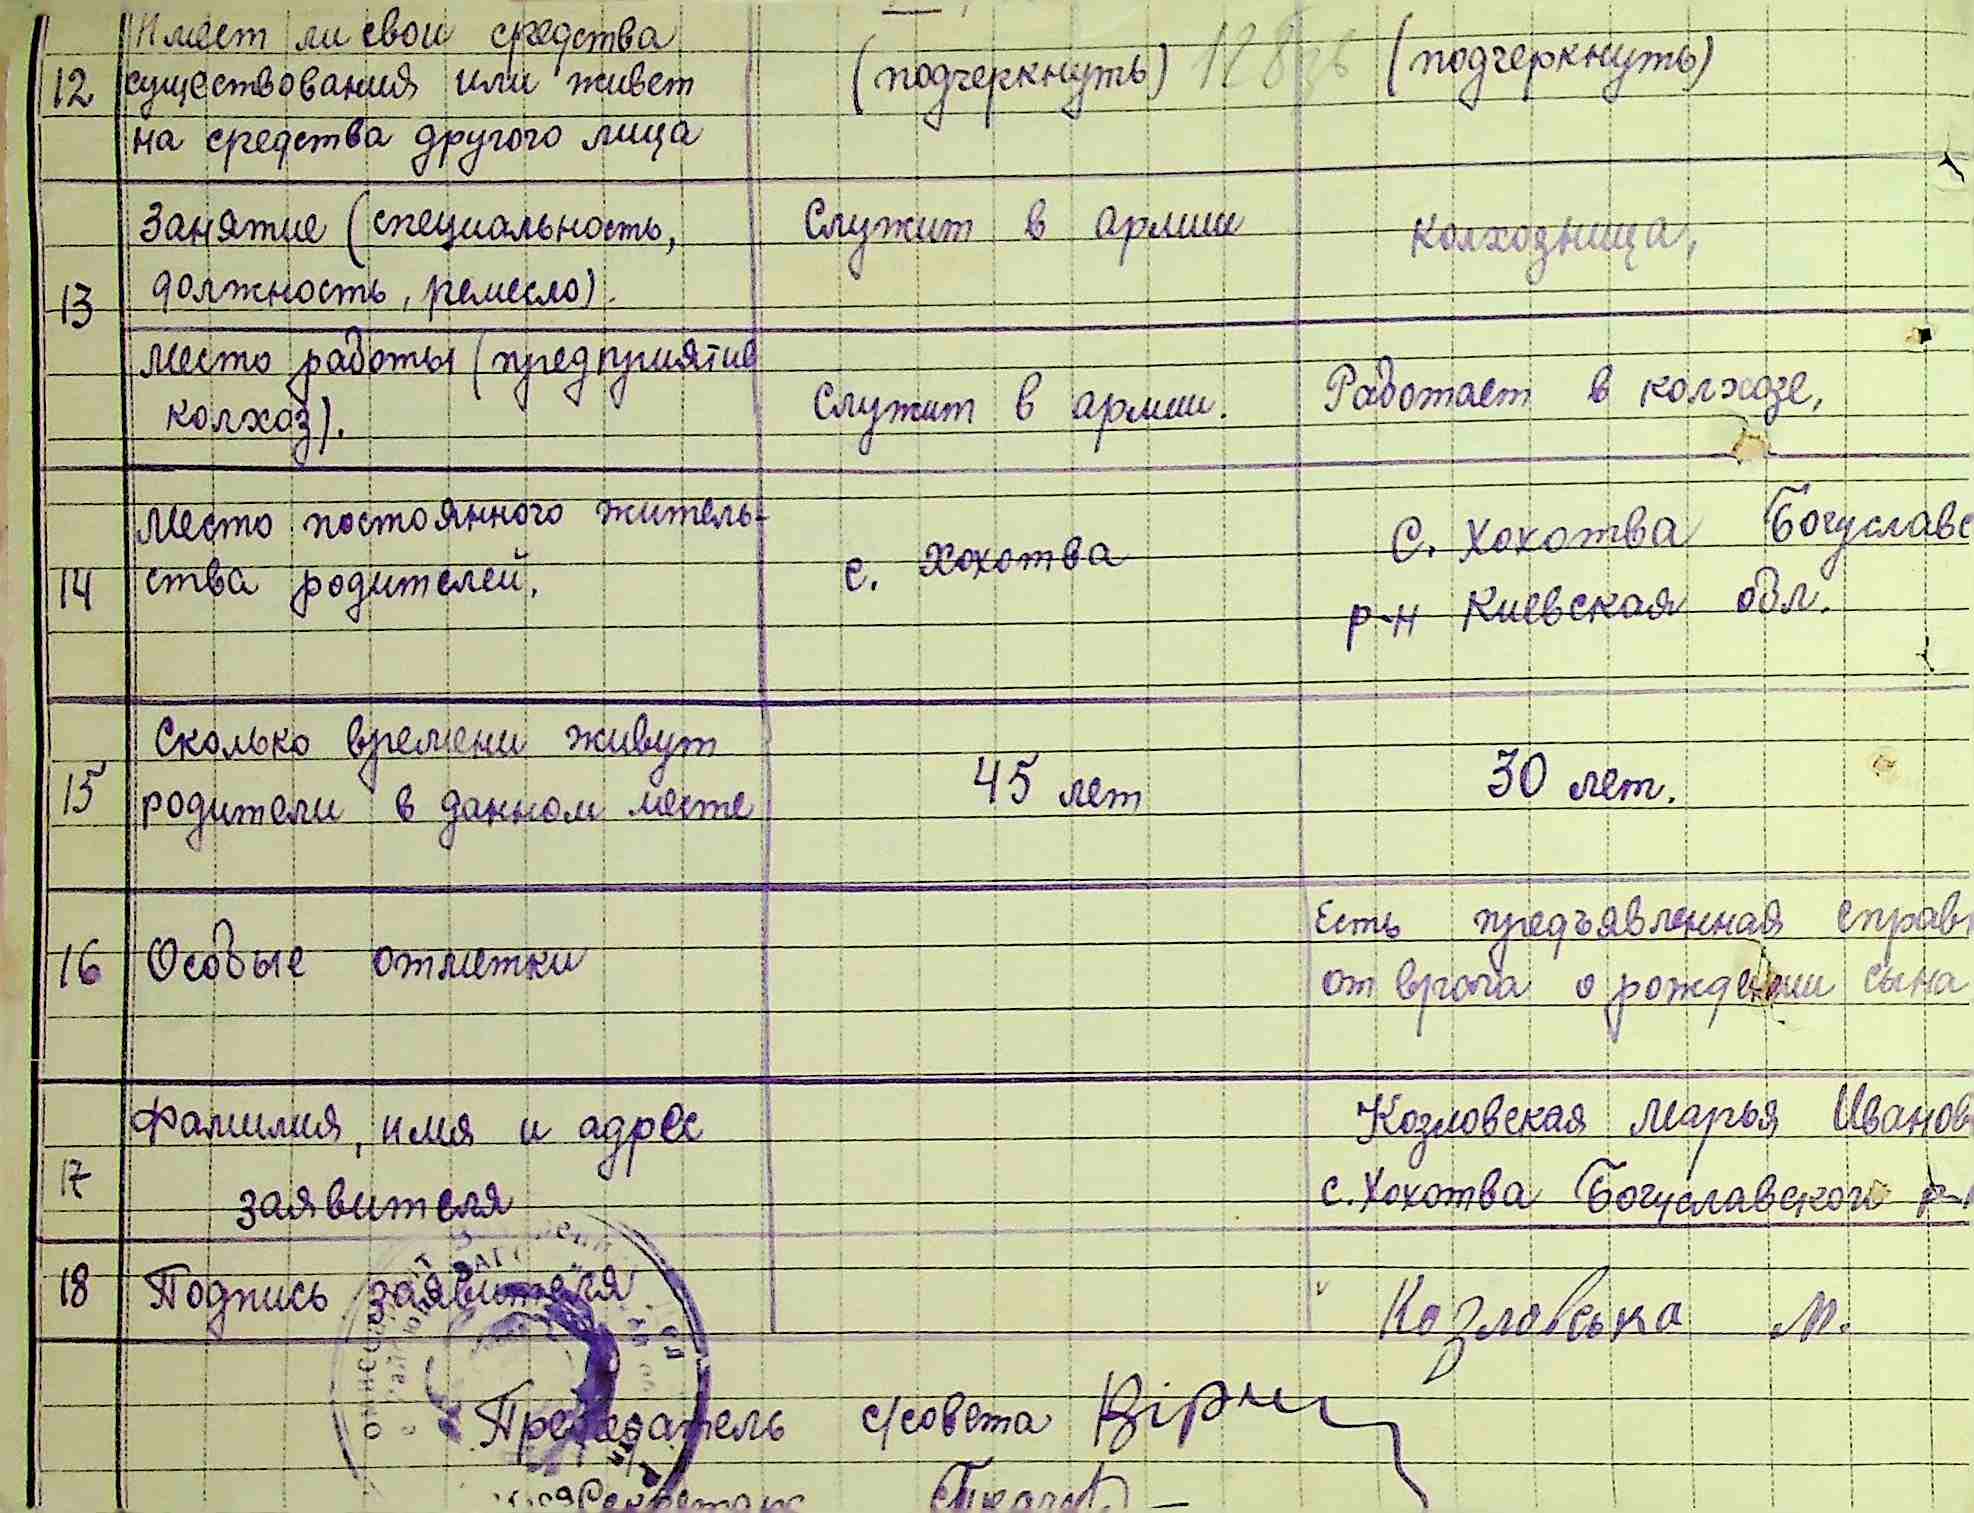 12
Имеет ли свои средства
существования или живет
на средства другого лица
(подчеркнуть)
(подчеркнуть)
13
Занятие (специальность,
должность, ремесло).
Служит в армии
колхозница,
Место работы (предприятие
колхоз).
Служит в армии.
Работает в колхозе,
14
Место постоянного житель-
ства родителей.
с. Хохотва
с. Хохотва Богуславс
р-н Киевская обл.
15
Сколько времени живут
родители в данном месте
45 лет
30 лет.
16
Особые отметки
Есть предъявленная справ
от врача о рождении сына
17
Фамилия, имя и адрес
заявителя
Козловская Марья Иванов
с. Хохотва Богуславского р-
18
Подпись заявителя
Козловська М.
Председатель с/совета
Секретарь